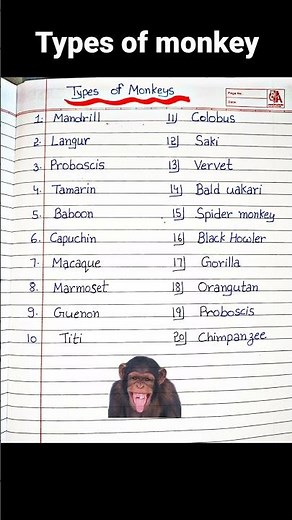 Types of monkey
Types of Monkeys
Page No.
Date
1. Mandrill
2. Langur
3. Proboscis
4. Tamarin
5. Baboon
6. Capuchin
7. Macaque
8. Marmoset
9. Guenon
10 Titi
11) Colobus
12) Saki
13) Vervet
14) Bald uakari
15) Spider monkey
16) Black Howler
17) Gorilla
18) Orangutan
19) Proboscis
20) Chimpanzee